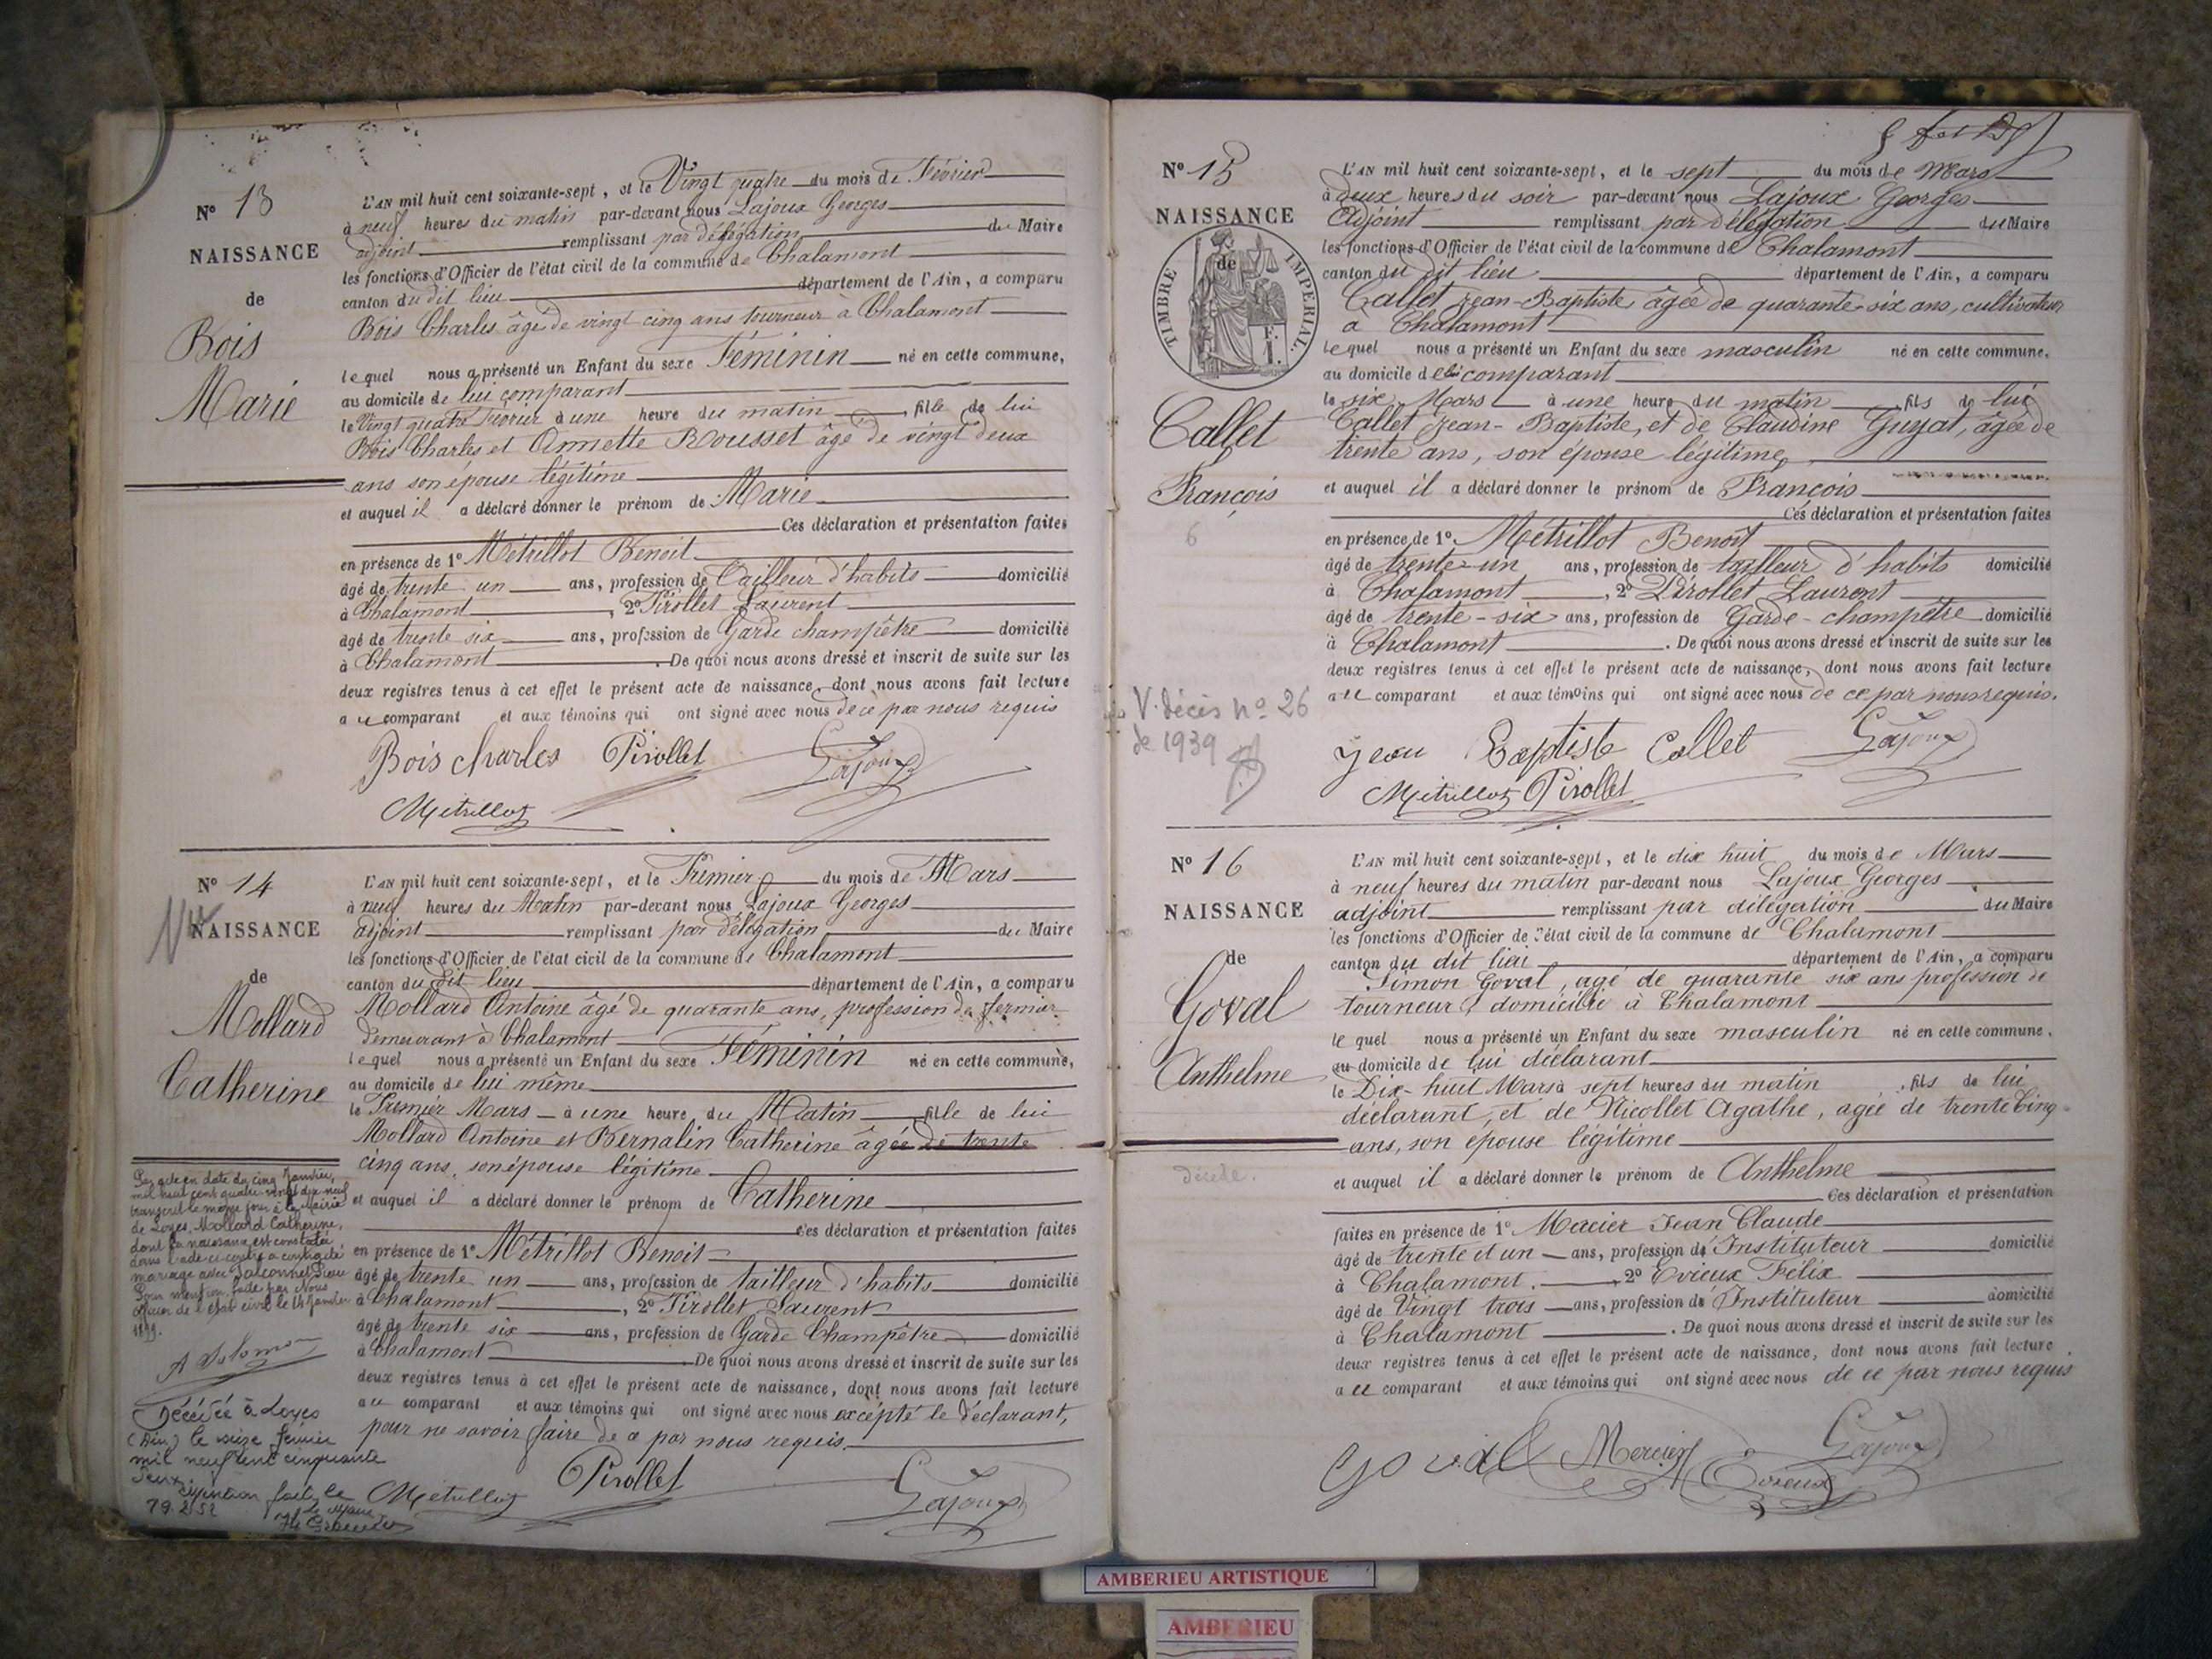 Nº 13
NAISSANCE
de
Bois
Marie
L'AN mil huit cent soixante-sept, et le Vingt quatre du mois de Février
à neuf heures du matin par-devant nous Lajoux Georges
adjoint remplissant par délégation du Maire
les fonctions d'Officier de l'état civil de la commune de Chalamont
canton du dit lieu département de l'Ain, a comparu
Bois Charles âgé de vingt cinq ans tourneur à Chalamont
lequel nous a présenté un Enfant du sexe Féminin né en cette commune,
au domicile de lui comparant
le Vingt quatre Février à une heure du matin, fille de lui
Bois Charles et Annette Rousset âgé de vingt deux
ans son épouse légitime
et auquel il a déclaré donner le prénom de Marie
Ces déclaration et présentation faites
en présence de 1º Métrillot Benoit
âgé de trente un ans, profession de Tailleur d'habits domicilié
à Chalamont, 2º Pirollet Laurent
âgé de trente six ans, profession de Garde champêtre domicilié
à Chalamont. De quoi nous avons dressé et inscrit de suite sur les
deux registres tenus à cet effet le présent acte de naissance, dont nous avons fait lecture
a ce comparant et aux témoins qui ont signé avec nous de ce par nous requis
Bois charles Pirollet Lajoux
Métrillot
Nº 14
NAISSANCE
de
Mollard
Catherine
L'AN mil huit cent soixante-sept, et le Premier du mois de Mars
à neuf heures du Matin par-devant nous Lajoux Georges
adjoint remplissant par délégation du Maire
les fonctions d'Officier de l'état civil de la commune de Chalamont
canton du dit lieu département de l'Ain, a comparu
Mollard Antoine âgé de quarante ans, profession de fermier
demeurant à Chalamont
lequel nous a présenté un Enfant du sexe Féminin né en cette commune,
au domicile de lui même
le Premier Mars à une heure du Matin fille de lui
Mollard Antoine et Bernalin Catherine âgée de trente
cinq ans, son épouse légitime
et auquel il a déclaré donner le prénom de Catherine
Ces déclaration et présentation faites
en présence de 1º Métrillot Benoit
âgé de trente un ans, profession de tailleur d'habits domicilié
à Chalamont, 2º Pirollet Laurent
âgé de trente six ans, profession de Garde Champêtre domicilié
à Chalamont De quoi nous avons dressé et inscrit de suite sur les
deux registres tenus à cet effet le présent acte de naissance, dont nous avons fait lecture
a ce comparant et aux témoins qui ont signé avec nous excépté le déclarant,
pour ne savoir faire de ce par nous requis.
Métrillot Pirollet Lajoux
Par acte en date du cinq Janvier,
mil huit cent quatre-vingt dix neuf
transcrit le même jour à la Mairie
de Loyes, Mollard Catherine,
dont la naissance est constatée
dans l'acte ci-contre a contracté
mariage avec Falconnet
Pour mention faite par Nous
Officier de l'état civil le 14 Janvier
1899.
Décédée à Loyes
(Ain) le seize février
mil neuf cent cinquante
deux
fait le
79.2.52
le Maire
Nº 15
NAISSANCE
de
TIMBRE IMPERIAL.
Callet
François
6
V. décès nº 26
de 1939
L'AN mil huit cent soixante-sept, et le sept du mois de Mars
à deux heures du soir par-devant nous Lajoux Georges
Adjoint remplissant par délégation du Maire
les fonctions d'Officier de l'état civil de la commune de Chalamont
canton du dit lieu département de l'Ain, a comparu
Callet Jean-Baptiste âgée de quarante-six ans, cultivateur
a Chalamont
lequel nous a présenté un Enfant du sexe masculin né en cette commune,
au domicile de lui comparant
le six Mars à une heure du matin, fils de lui
Callet Jean-Baptiste, et de Claudine Guyat, âgée de
trente ans, son épouse légitime,
et auquel il a déclaré donner le prénom de François
Ces déclaration et présentation faites
en présence de 1º. Métrillot Benoit
âgé de trente-un ans, profession de tailleur d'habits domicilié
à Chalamont, 2º Pérollet Laurent
âgé de trente-six ans, profession de Garde-champêtre domicilié
à Chalamont. De quoi nous avons dressé et inscrit de suite sur les
deux registres tenus à cet effet le présent acte de naissance, dont nous avons fait lecture
a ce comparant et aux témoins qui ont signé avec nous de ce par nous requis.
Jean Baptiste Callet Lajoux
Métrillot Pirollet
Nº 16
NAISSANCE
de
Goval
Anthelme
décédé.
L'AN mil huit cent soixante-sept, et le dix huit du mois de Mars
à neuf heures du matin par-devant nous Lajoux Georges
adjoint remplissant par délégation du Maire
les fonctions d'Officier de l'état civil de la commune de Chalamont
canton du dit lieu département de l'Ain, a comparu
Simon Goval, agé de quarante six ans profession de
tourneur domicilié à Chalamont
le quel nous a présenté un Enfant du sexe masculin né en cette commune,
au domicile de lui déclarant
le Dix-huit Mars à sept heures du matin, fils de lui
déclarant, et de Nicollet Agathe, agée de trente Cinq
ans, son épouse légitime
et auquel il a déclaré donner le prénom de Anthelme
Ces déclaration et présentation
faites en présence de 1º Mercier Jean Claude
âgé de trente et un ans, profession de Instituteur domicilié
à Chalamont. 2º Evieux Félix
âgé de Vingt trois ans, profession de Instituteur domicilié
à Chalamont. De quoi nous avons dressé et inscrit de suite sur les
deux registres tenus à cet effet le présent acte de naissance, dont nous avons fait lecture
a ce comparant et aux témoins qui ont signé avec nous de ce par nous requis
Goval Mercier Evieux Lajoux
AMBERIEU ARTISTIQUE
AMBERIEU